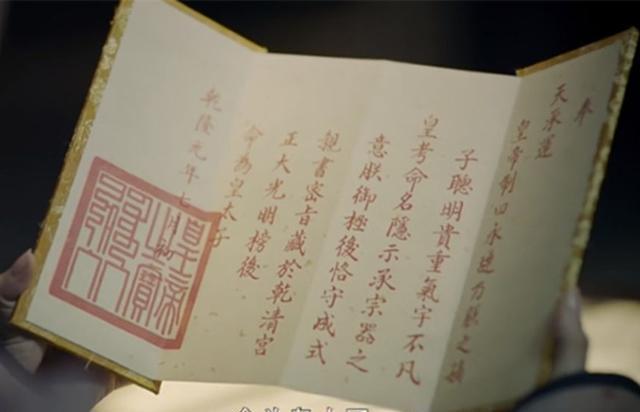 奉
天承運
皇帝制曰永璉乃朕之嫡
子聰明貴重氣宇不凡
皇考命名隱示承宗器之
意朕御極後恪守成式
親書密旨藏於乾清宮
正大光明榜後
命為皇太子
乾隆元年七月初
皇帝之寶